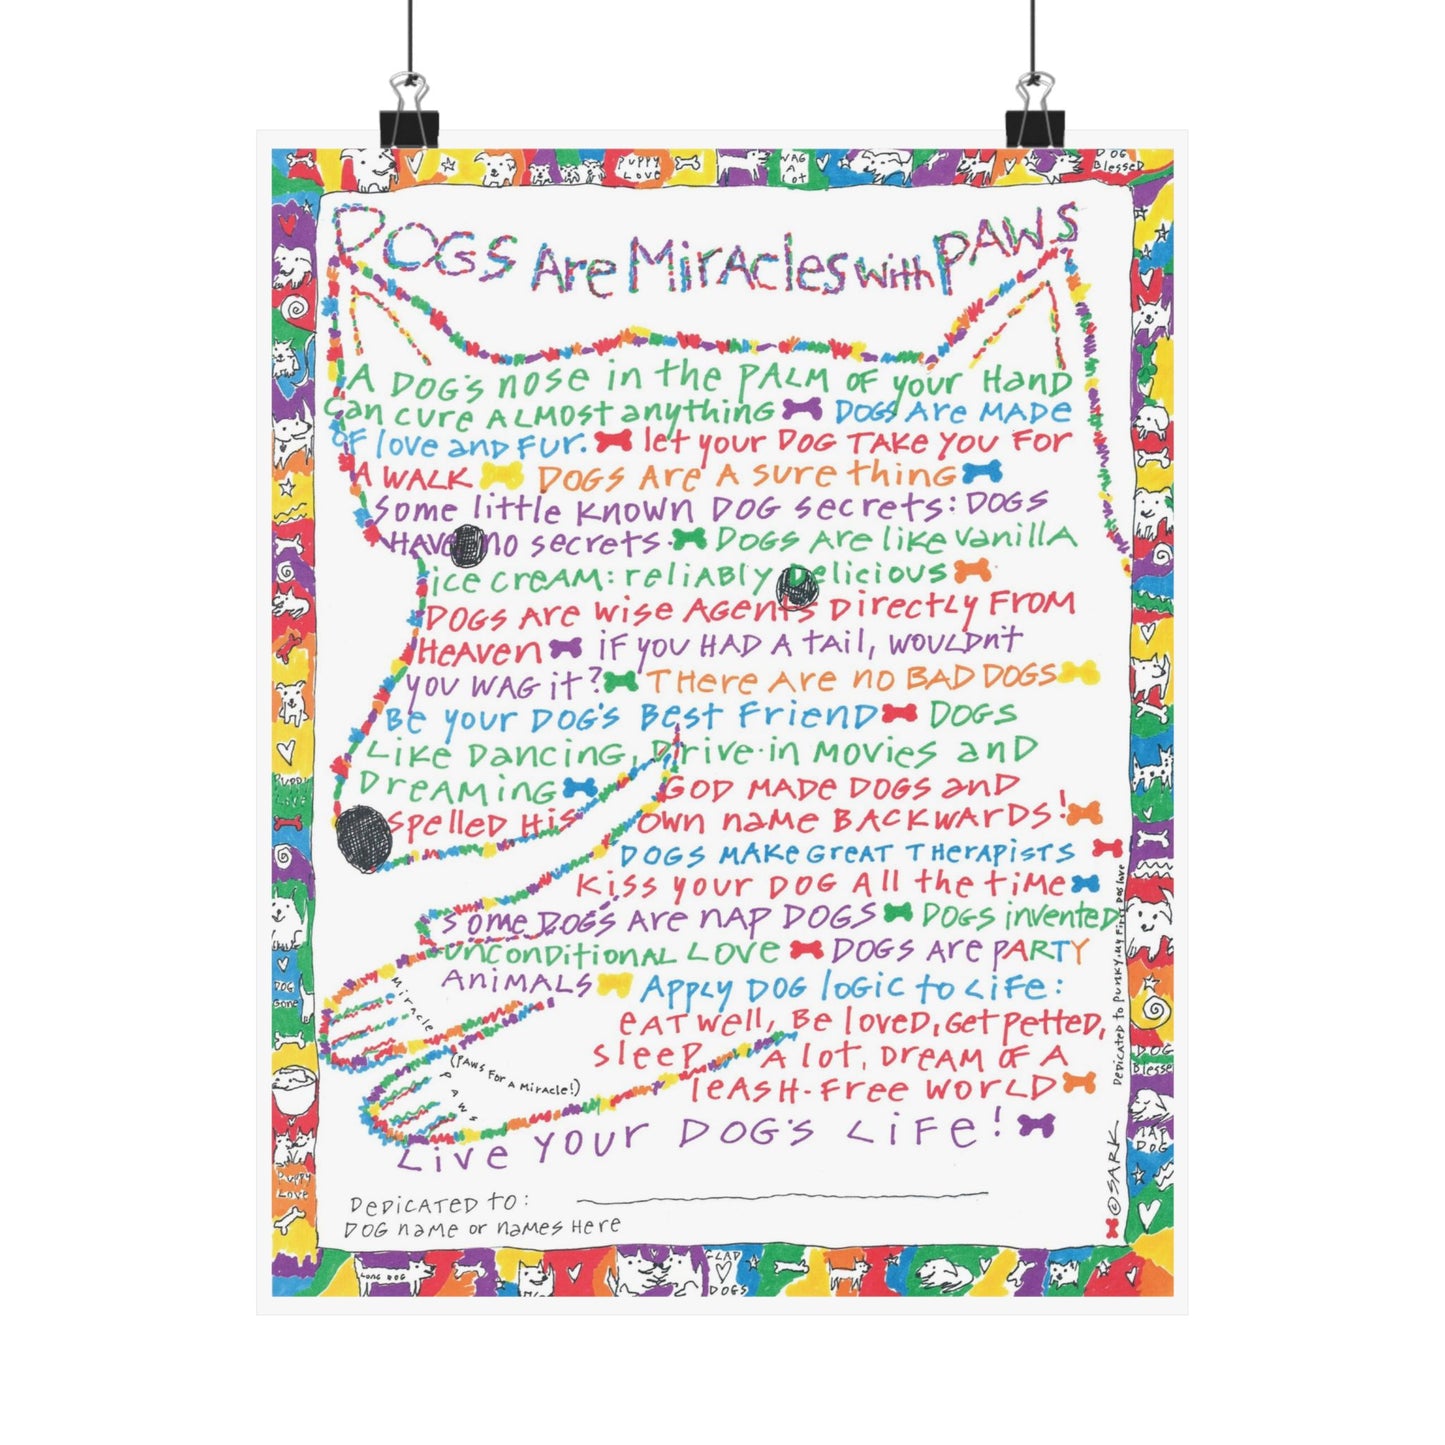 PUPPY LOVE
WAG A LOT
DOG Blessed
DOGS Are Miracles with PAWS
A DOG'S nose in the PALM OF your Hand
Can cure ALMOST anything DOGS Are MADE
OF love and FUR. let your DOG TAKE YOU FOR
A WALK DOGS Are A sure thing
Some little KNOWN DOG secrets: DOGS
HAVE no secrets. DOGS Are like vanilla
ice cream: reliably Delicious
DOGS Are wise Agents Directly From
Heaven if you HAD A tail, wouldn't
you WAG it? There Are no BAD DOGS
Be your DOG'S Best Friend DOGS
Like Dancing, Drive-in movies and
Dreaming GOD MADE DOGS and
spelled His own name BACKWARDS!
DOGS MAKe Great Therapists
Kiss your DOG All the time
Some DOGS Are nap DOGS DOGS invented
unconditional Love DOGS Are PARTY
Animals Apply DOG logic to Life:
eat well, Be loved, Get petted,
sleep A lot, Dream of A
leash-Free world
Live your DOG'S Life!
Miracle
PAWS
(PAWS For A Miracle!)
Dedicated to: 
DOG name or names Here
Dedicated to Punky, my First Dog love
©SARK
DOG Gone
PUPPY LOVE
DOG Blessed
LAP DOG
LONG DOG
GLAD DOGS